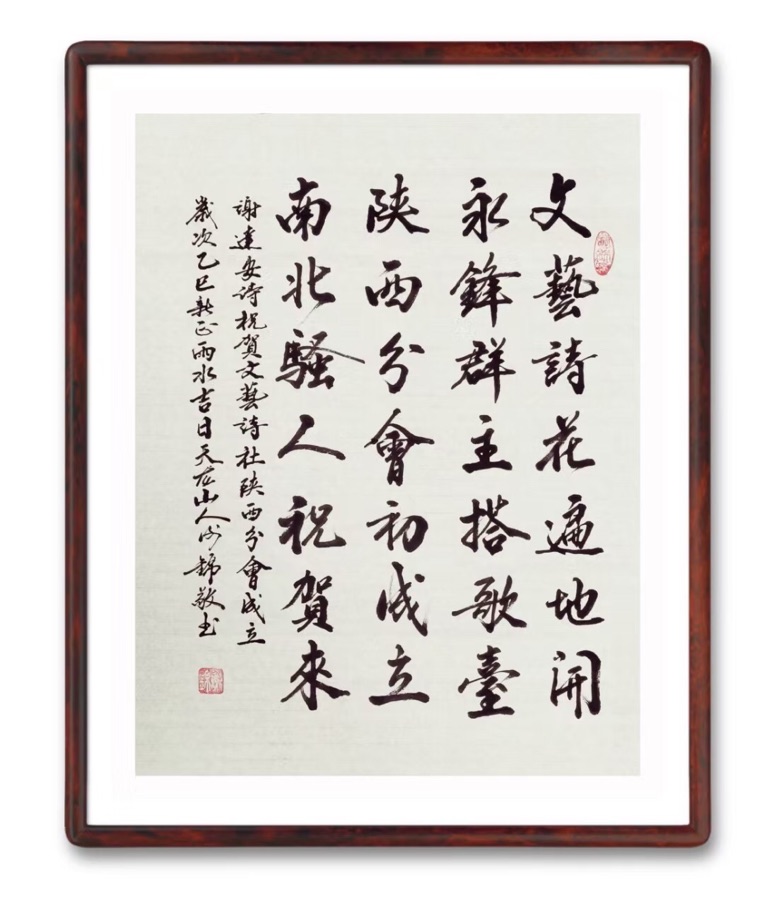 文藝詩花遍地開
永鋒群主搭歌臺
陝西分會初成立
南北騷人祝賀來
謝達安诗祝賀文藝詩社陝西分會成立
歲次乙巳新正雨水吉日天在山人錦敬书